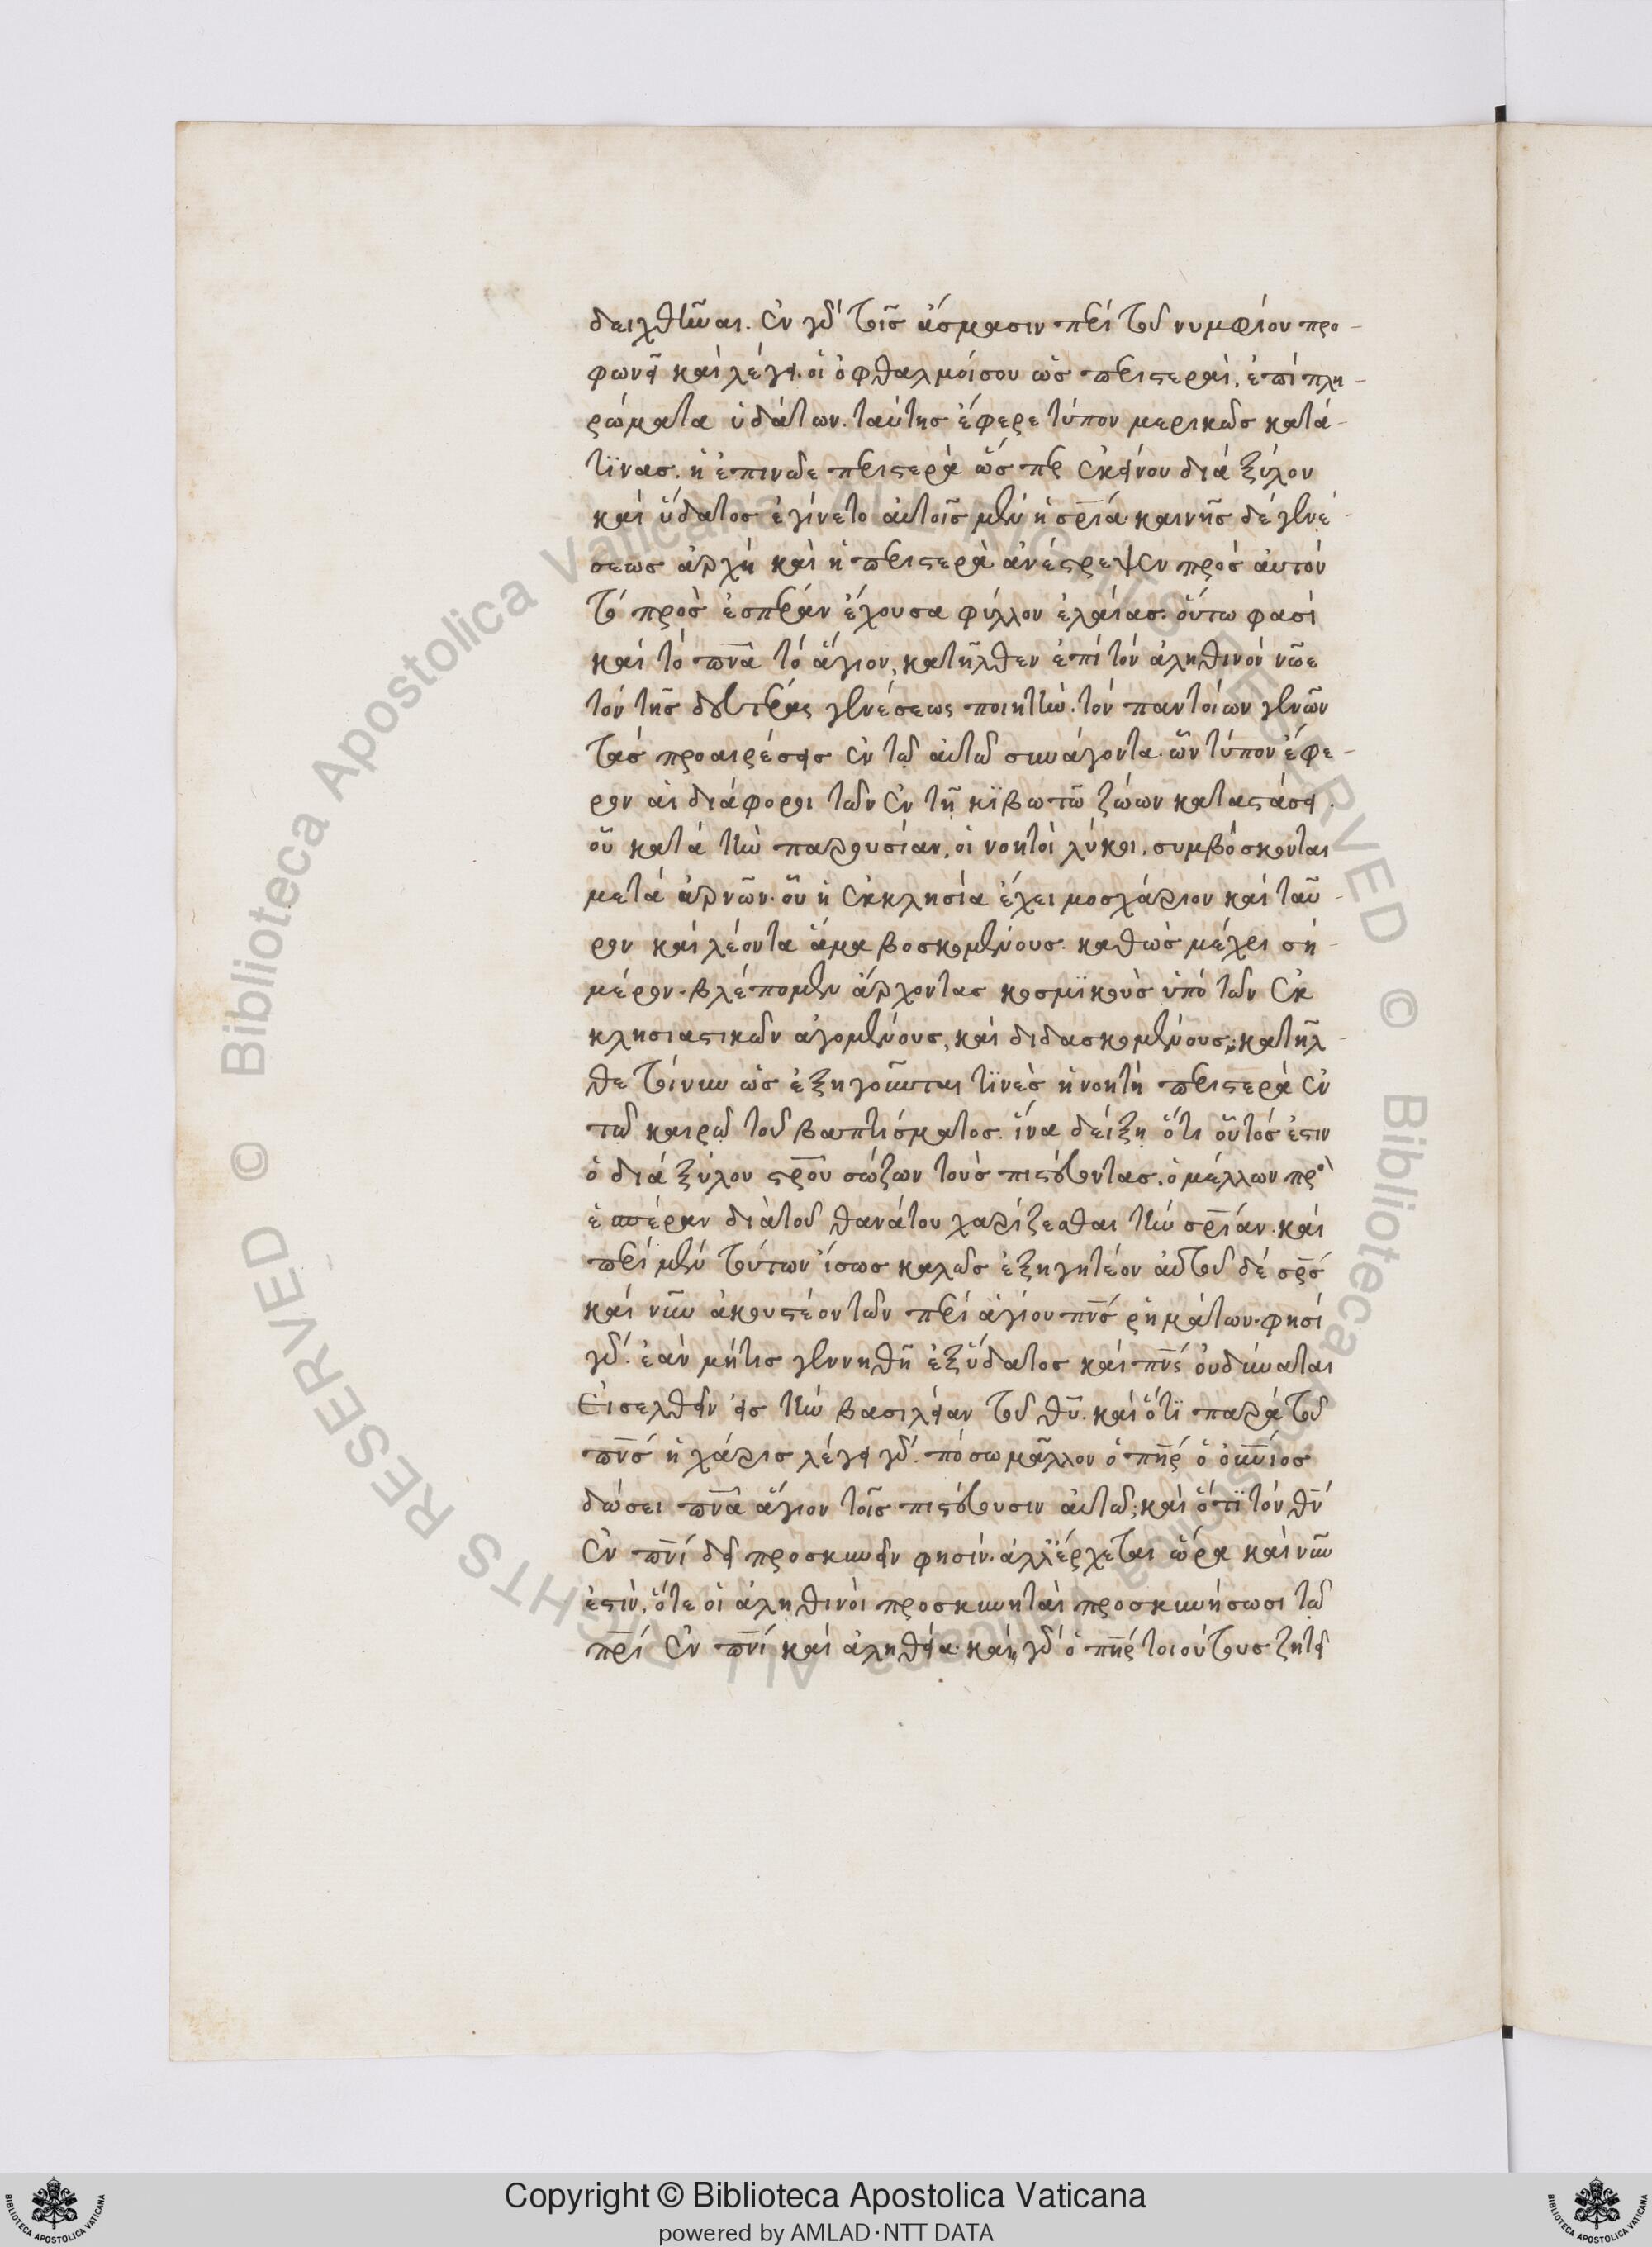 δειχθῆναι. ἐν γὰρ τοῖς ἄσμασιν περὶ τοῦ νυμφίου προ-
φωνεῖ καὶ λέγει. οἱ ὀφθαλμοί σου ὡς περιστεραὶ, ἐπὶ πλη-
ρώματα ὑδάτων. ταύτης ἔφερε τύπον μερικῶς κατά-
τϊνας. ἡ ἐπι νῶε περιστερὰ ὥς περ ἐκείνου διὰ ξύλου
καὶ ὕδατος ἐγίνετο αὐτοῖς μὲν ἡ σ̅ρ̅ία καινῆς δὲ γενέ-
σεως ἀρχὴ καὶ ἡ περιστερὰ ἀνέστρεψεν πρὸς αὐτὸν
τὸ πρὸς ἑσπέραν ἔχουσα φύλλον ἐλαίας. οὕτω φασὶ
καὶ τὸ π̅ν̅α̅ τὸ ἅγιον, κατῆλθεν ἐπὶ τὸν ἀληθινὸν νῶε
τὸν τῆς δευτέρας γενέσεως ποιητὴν. τὸν παντοίων γενῶν
τὰς προαιρέσεις ἐν τῷ αὐτῶ συνάγοντα. ὧν τύπον ἔφε-
ρον αἱ διάφοροι τῶν ἐν τῇ κϊβωτῶ ζώων καταστάσει.
οὗ κατὰ τὴν παρουσίαν, οἱ νοητοὶ λύκοι, συμβόσκονται
μετὰ ἀρνῶν. οὗ ἡ ἐκκλησία ἔχει μοσχάριον καὶ ταῦ-
ρον καὶ λέοντα ἅμα βοσκομένους. καθὼς μέχρι σή-
μέρον. βλέπομεν ἄρχοντας κοσμϊκοὺς ὑπὸ τῶν ἐκ
κλησιαστικῶν ἀγομένους, καὶ διδασκομένους; κατῆλ-
θε τοίνυν ὡς ἐξηγοῦνται τϊνὲς ἡ νοητὴ περιστερὰ ἐν
τῷ καιρῷ τοῦ βαπτίσματος. ἵνα δείξῃ ὅτι οὗτός ἐστιν
ὁ διὰ ξύλου στ̅ρ̅ο̅υ̅ σώζων τοὺς πιστεύοντας. ὁ μέλλων πρὸ
ἑσπέραν διὰ τοῦ θανάτου χαρίζεσθαι τὴν σ̅ρ̅ίαν. καὶ
περὶ μὲν τούτων ἴσως καλῶς ἐξηγητέον αὐτοῦ δὲ σ̅ρ̅ς̅
καὶ νῦν ἀκουστέον τῶν περὶ ἁγίου π̅ν̅ς̅ ῥημάτων. φησὶ
γὰρ. ἐὰν μήτις γεννηθῇ ἐξ ὕδατος καὶ π̅ν̅ς̅ οὐ δύναται
Εἰσελθεῖν εἰς τὴν βασιλείαν τοῦ θ̅υ̅. καὶ ὅτϊ παρὰ τοῦ
π̅ν̅ς̅ ἡ χάρις λέγει γὰρ. πόσω μᾶλλον ὁ π̅η̅ρ̅ ὁ ο̅υ̅ν̅ιος
δώσει π̅ν̅α̅ ἅγιον τοῖς πιστεύουσιν αὐτῶ; καὶ ὅτϊ τὸν θ̅ν̅
ἐν π̅ν̅ι̅ δεῖ προσκυνεῖν φησίν. ἀλλ' ἔρχεται ὥρα καὶ νῦν
ἐστὶν, ὅτε οἱ ἀληθινοὶ προσκυνηταὶ προσκυνήσωσι τῶ
π̅ρ̅ι̅ ἐν π̅ν̅ι̅ καὶ ἀληθεία. καὶ γὰρ ὁ π̅η̅ρ̅ τοιούτους ζητεῖ